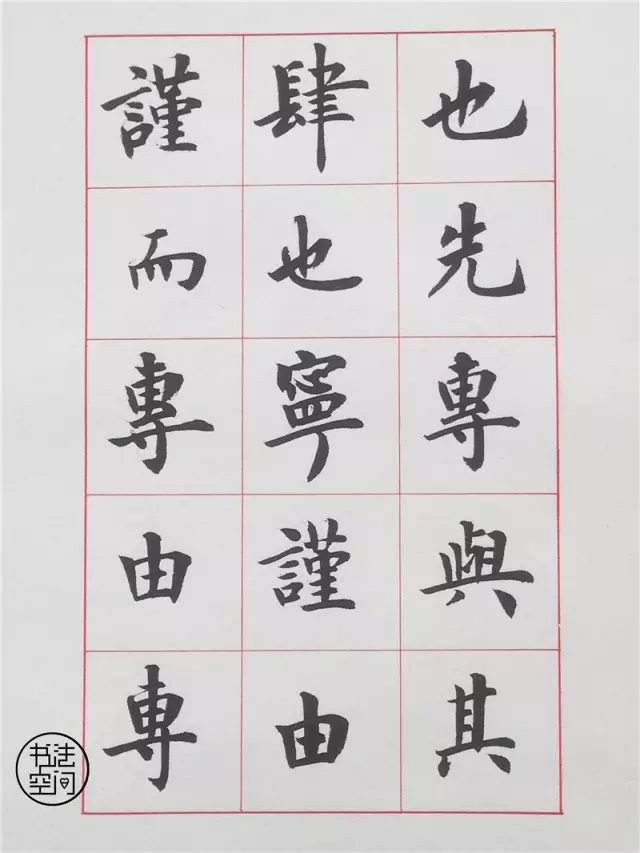 也先專與其
肆也寧謹由
謹而專由專
书法
空间